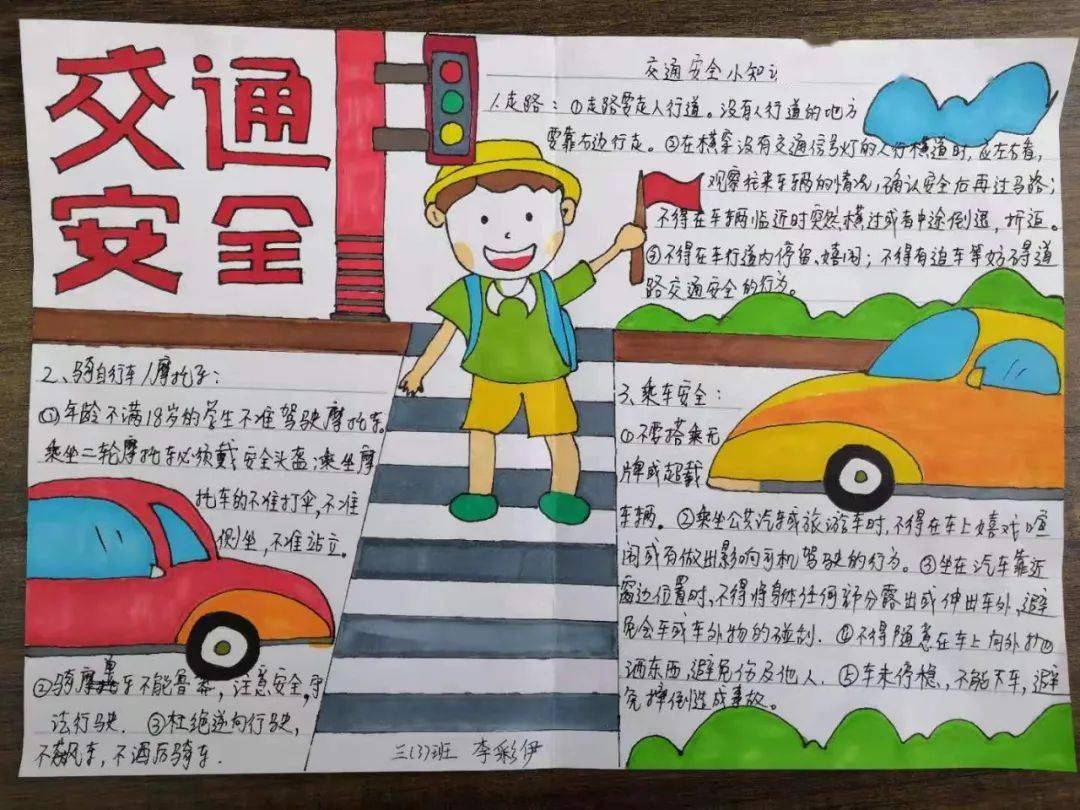 交通
安全
交通安全小知识
1.走路：①走路要走人行道。没有人行道的地方
要靠右边行走。②在横穿没有交通信号灯的人行横道时，应左右看，
观察往来车辆的情况，确认安全后再过马路；
不得在车辆临近时突然横过或者中途倒退，折返。
③不得在车行道内停留、嬉闹；不得有追车等妨碍道
路交通安全的行为。
2、骑自行车/摩托车：
①年龄不满18岁的学生不准驾驶摩托车。
乘坐二轮摩托车必须戴安全头盔；乘坐摩
托车的不准打伞，不准
侧坐，不准站立。
②骑摩单车不能鲁莽，注意安全，守
法行驶. ③杜绝逆向行驶，
不飙车，不酒后骑车.
3、乘车安全：
①不要搭乘无
牌或超载
车辆。②乘坐公共汽车或旅游车时，不得在车上嬉戏喧
闹或有做出影响司机驾驶的行为。③坐在汽车靠近
窗边位置时，不得将身体任何部分露出或伸出车外，避
免会车或车外物的碰刮. ④不得随意在车上向外抛
洒东西，避免伤及他人. ⑤车未停稳，不能下车，避
免摔倒造成事故。
三(3)班 李彩伊